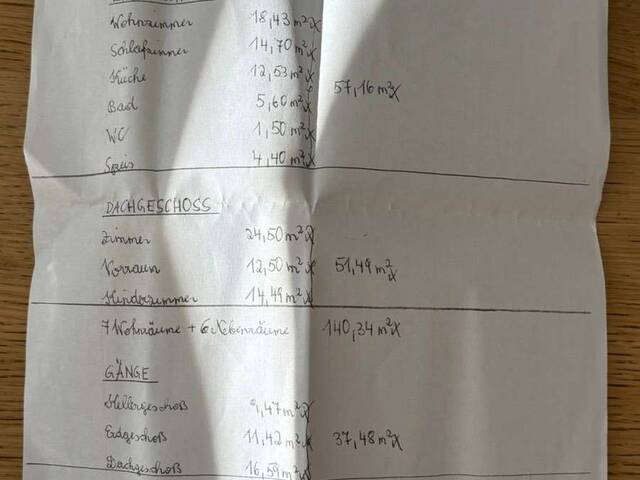 Wohnzimmer 18,43 m² X
Schlafzimmer 14,70 m² X
Küche 12,53 m² X
57,16 m² X
Bad 5,60 m² X
WC 1,50 m² X
Speis 4,40 m² X
DACHGESCHOSS
Zimmer 24,50 m² X
Vorraum 12,50 m² X 51,49 m² X
Kinderzimmer 14,49 m² X
7 Wohnräume + 6 Nebenräume 140,34 m² X
GÄNGE
Kellergeschoß 9,47 m² X
Erdgeschoß 11,42 m² X 37,48 m² X
Dachgeschoß 16,59 m² X